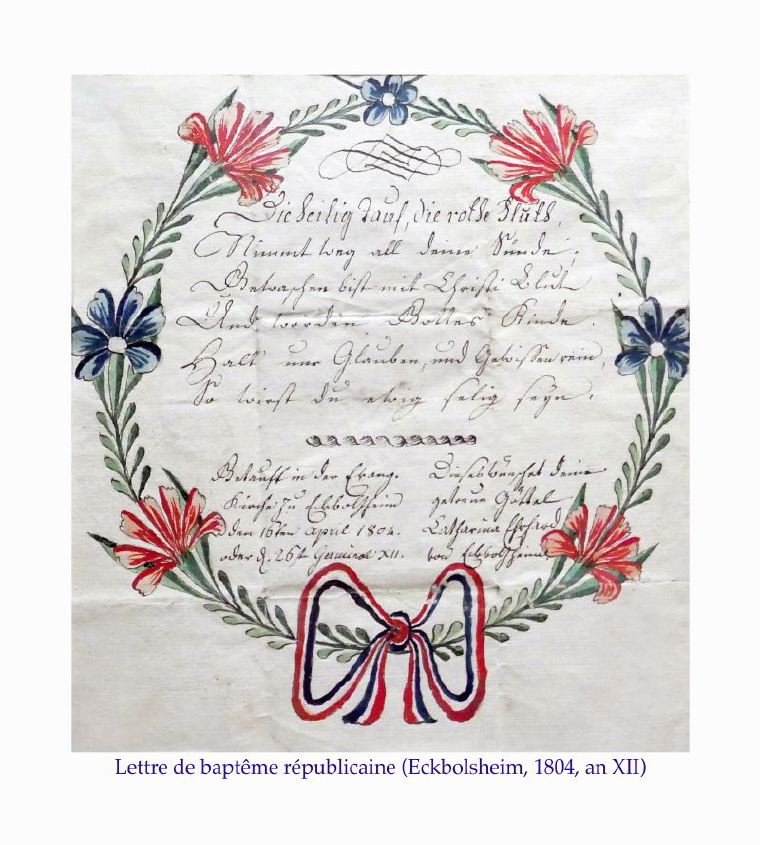 Die heilig Tauf, die rothe Fluth,
Nimmt weg all deine Sünde;
Gewaschen bist mit Christi Blut
Und worden Gottes Kinde.
Halt nur Glauben, und Gewissen rein,
So wirst du ewig selig seyn.
Getaufft in der Evang.
Kirche zu Eckbolsheim
den 16ten April 1804.
oder d. 26st Germinal XII.
Dieses wünschet deine
getreue Göttel
Catharina Ehrhard
von Eckbolsheim
Lettre de baptême républicaine (Eckbolsheim, 1804, an XII)